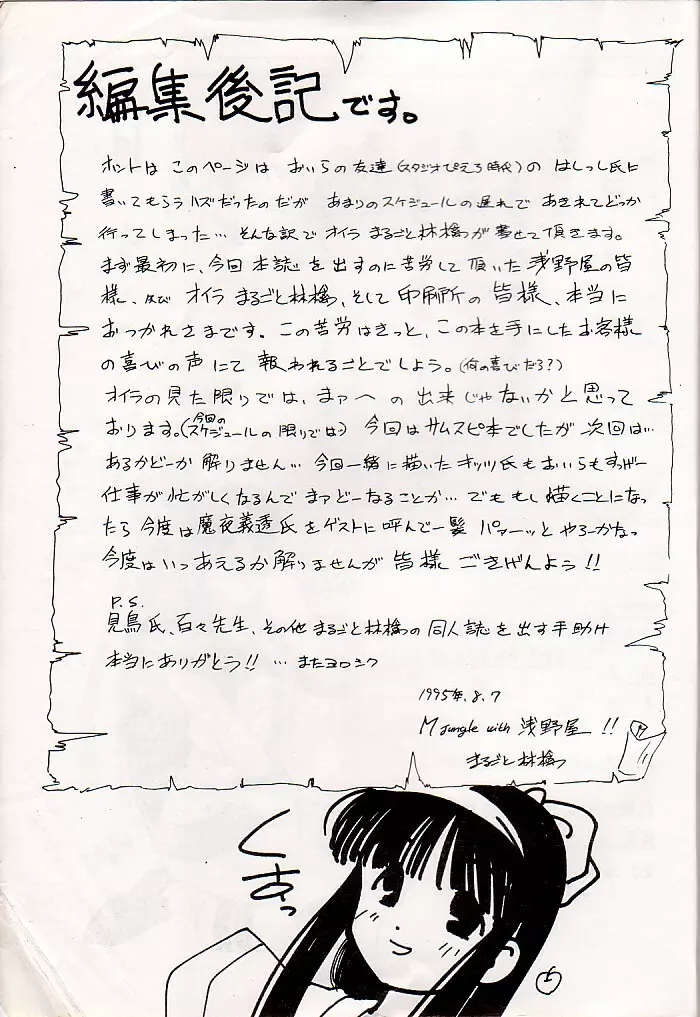 編集後記です。
ホントは このページは おいらの友達(スタジオぴえろ時代)の はしっし氏に
書いてもらうハズだったのだが あまりのスケジュールの遅れで あきれてどっか
行ってしまった… そんな訳で オイラ まるごと林檎が書せて頂きます。
まず最初に、今回 本誌を出すのに苦労して頂いた 浅野屋の皆
様、及び オイラ まるごと林檎、そして 印刷所の 皆様、本当に
おつかれさまです。この苦労はきっと、この本を手にしたお客様
の喜びの声にて 報われることでしょう。(何の喜びだろ?)
オイラの見た限りでは、まァへの 出来じゃないかと思って
おります。(今回のスケジュールの限りでは) 今回はサムスピ本でしたが 次回は…
あるかどーか 解りません… 今回一緒に描いた キッツ氏もおいらもすっげー
仕事が忙がしくなるんで まァどーなることか… でももし描くことになっ
たら今度は魔夜義透氏をゲストに呼んで一髪 パァーッとやろーかなっ
今度はいつあえるか解りませんが 皆様 ごきげんよう!!
P.S.
見鳥氏、百々先生、その他 まるごと林檎の 同人誌を出す手助け
本当にありがとう!! … またヨロシク
1995年.8.7
M Jungle with 浅野屋 !!
まるごと林檎
くすっ